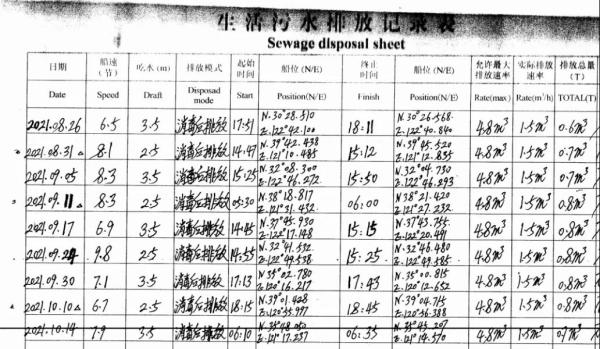 生活污水排放记录表
Sewage disposal sheet
日期 船速(节) 吃水(m) 排放模式 起始时间 船位(N/E) 终止时间 船位(N/E) 允许最大排放速率 实际排放速率 排放总量(T)
Date Speed Draft Disposad mode Start Position(N/E) Finish Position(N/E) Rate(max) Rate(m³/h) TOTAL(T)
2021.08.26 6.5 3.5 消毒后排放 17:51 N.30°28.510 E.122°42.100 18:11 N.30°26.568 E.122°40.840 4.8m³ 1.5m³ 0.6m³
2021.08.31 8.1 2.5 消毒后排放 14:47 N.39°42.438 E.121°10.485 15:12 N.39°45.520 E.121°12.835 4.8m³ 1.5m³ 0.7m³
2021.09.05 8.3 3.5 消毒后排放 15:25 N.32°08.300 E.122°46.272 15:50 N.32°04.730 E.122°46.293 4.8m³ 1.5m³ 0.7m³
2021.09.11 8.3 2.5 消毒后排放 05:30 N.38°18.817 E.121°31.432 06:00 N.38°21.420 E.121°27.232 4.8m³ 1.5m³ 0.8m³
2021.09.17 6.9 3.5 消毒后排放 14:45 N.37°45.930 E.122°17.148 15:15 N.37°43.755 E.122°20.491 4.8m³ 1.5m³ 0.8m³
2021.09.24 9.8 2.5 消毒后排放 14:55 N.32°41.532 E.122°49.538 15:25 N.32°46.480 E.122°49.585 4.8m³ 1.5m³ 0.8m³
2021.09.30 7.1 3.5 消毒后排放 17:13 N.35°02.780 E.120°16.217 17:43 N.35°00.815 E.120°12.652 4.8m³ 1.5m³ 0.8m³
2021.10.10 6.7 2.5 消毒后排放 18:15 N.39°01.428 E.120°35.997 18:45 N.39°04.715 E.120°36.388 4.8m³ 1.5m³ 0.8m³
2021.10.14 7.9 3.5 消毒后排放 06:10 N.35°48.050 E.121°17.237 06:35 N.35°45.207 E.121°14.570 4.8m³ 1.5m³